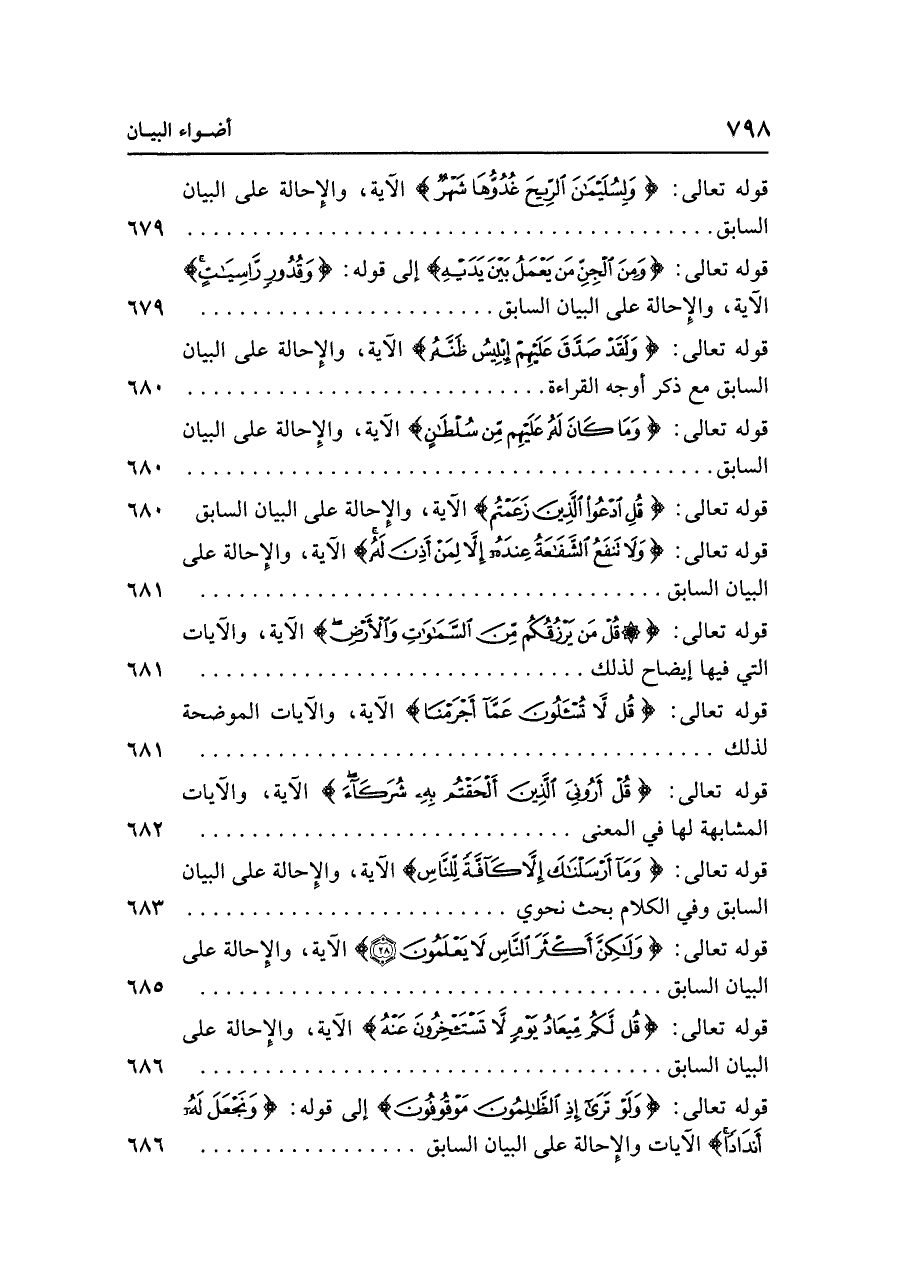 ٧٩٨ أضـواء البيـان
قوله تعالى: ﴿ وَلِسُلَيْمَٰنَ ٱلرِّيحَ غُدُوُّهَا شَهْرٌ ﴾ الآية، والإحالة على البيان
السابق ........................................ ٦٧٩
قوله تعالى: ﴿وَمِنَ ٱلْجِنِّ مَن يَعْمَلُ بَيْنَ يَدَيْهِ﴾ إلى قوله: ﴿ وَقُدُورٍ رَّاسِيَٰتٍۚ﴾
الآية، والإحالة على البيان السابق ....................... ٦٧٩
قوله تعالى: ﴿ وَلَقَدْ صَدَّقَ عَلَيْهِمْ إِبْلِيسُ ظَنَّهُۥ﴾ الآية، والإحالة على البيان
السابق مع ذكر أوجه القراءة ............................ ٦٨٠
قوله تعالى: ﴿ وَمَا كَانَ لَهُۥ عَلَيْهِم مِّن سُلْطَٰنٍ﴾ الآية، والإحالة على البيان
السابق ........................................ ٦٨٠
قوله تعالى: ﴿ قُلِ ٱدْعُوا۟ ٱلَّذِينَ زَعَمْتُم﴾ الآية، والإحالة على البيان السابق ٦٨٠
قوله تعالى: ﴿ وَلَا تَنفَعُ ٱلشَّفَٰعَةُ عِندَهُۥٓ إِلَّا لِمَنْ أَذِنَ لَهُۥۚ﴾ الآية، والإحالة على
البيان السابق .................................... ٦٨١
قوله تعالى: ﴿ ۞ قُلْ مَن يَرْزُقُكُم مِّنَ ٱلسَّمَٰوَٰتِ وَٱلْأَرْضِۖ﴾ الآية، والآيات
التي فيها إيضاح لذلك .............................. ٦٨١
قوله تعالى: ﴿ قُل لَّا تُسْـَٔلُونَ عَمَّآ أَجْرَمْنَا﴾ الآية، والآيات الموضحة
لذلك ........................................ ٦٨١
قوله تعالى: ﴿ قُلْ أَرُونِىَ ٱلَّذِينَ أَلْحَقْتُم بِهِۦ شُرَكَآءَۖ ﴾ الآية، والآيات
المشابهة لها في المعنى ............................. ٦٨٢
قوله تعالى: ﴿ وَمَآ أَرْسَلْنَٰكَ إِلَّا كَآفَّةً لِّلنَّاسِ﴾ الآية، والإحالة على البيان
السابق وفي الكلام بحث نحوي ......................... ٦٨٣
قوله تعالى: ﴿ وَلَٰكِنَّ أَكْثَرَ ٱلنَّاسِ لَا يَعْلَمُونَ ٢٨﴾ الآية، والإحالة على
البيان السابق .................................... ٦٨٥
قوله تعالى: ﴿قُل لَّكُم مِّيعَادُ يَوْمٍ لَّا تَسْتَـْٔخِرُونَ عَنْهُ﴾ الآية، والإحالة على
البيان السابق .................................... ٦٨٦
قوله تعالى: ﴿ وَلَوْ تَرَىٰٓ إِذِ ٱلظَّٰلِمُونَ مَوْقُوفُونَ﴾ إلى قوله: ﴿ وَنَجْعَلَ لَهُۥٓ
أَندَادًاۚ﴾ الآيات والإحالة على البيان السابق ................. ٦٨٦